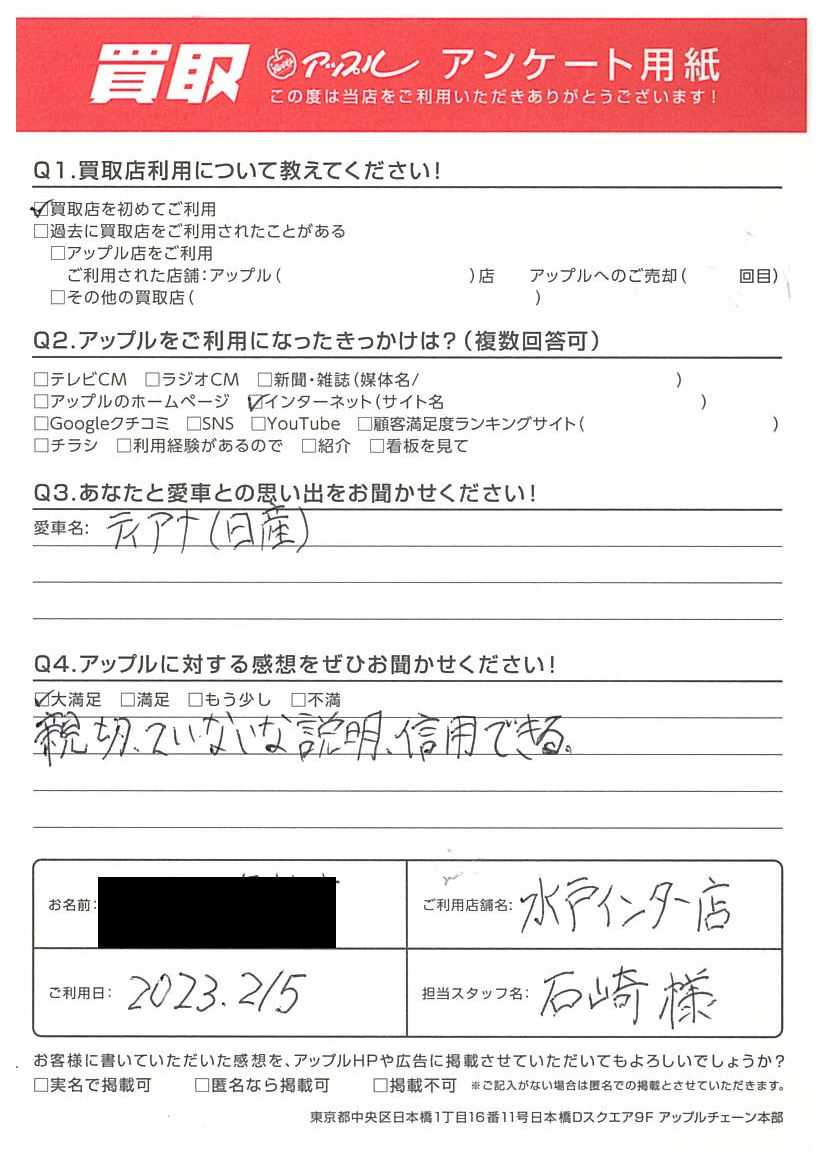 買取 アップル アンケート用紙
この度は当店をご利用いただきありがとうございます!
Q1.買取店利用について教えてください!
☑買取店を初めてご利用
□過去に買取店をご利用されたことがある
□アップル店をご利用
ご利用された店舗:アップル( )店 アップルへのご売却( 回目)
□その他の買取店( )
Q2.アップルをご利用になったきっかけは?(複数回答可)
□テレビCM □ラジオCM □新聞・雑誌(媒体名/ )
□アップルのホームページ ☑インターネット(サイト名 )
□Googleクチコミ □SNS □YouTube □顧客満足度ランキングサイト( )
□チラシ □利用経験があるので □紹介 □看板を見て
Q3.あなたと愛車との思い出をお聞かせください!
愛車名: ティアナ(日産)
Q4.アップルに対する感想をぜひお聞かせください!
☑大満足 □満足 □もう少し □不満
親切、ていねいな説明、信用できる。
お名前:
ご利用店舗名: 水戸インター店
ご利用日: 2023.2/5
担当スタッフ名: 石崎様
お客様に書いていただいた感想を、アップルHPや広告に掲載させていただいてもよろしいでしょうか?
□実名で掲載可 □匿名なら掲載可 □掲載不可 ※ご記入がない場合は匿名での掲載とさせていただきます。
東京都中央区日本橋1丁目16番11号日本橋Dスクエア9F アップルチェーン本部